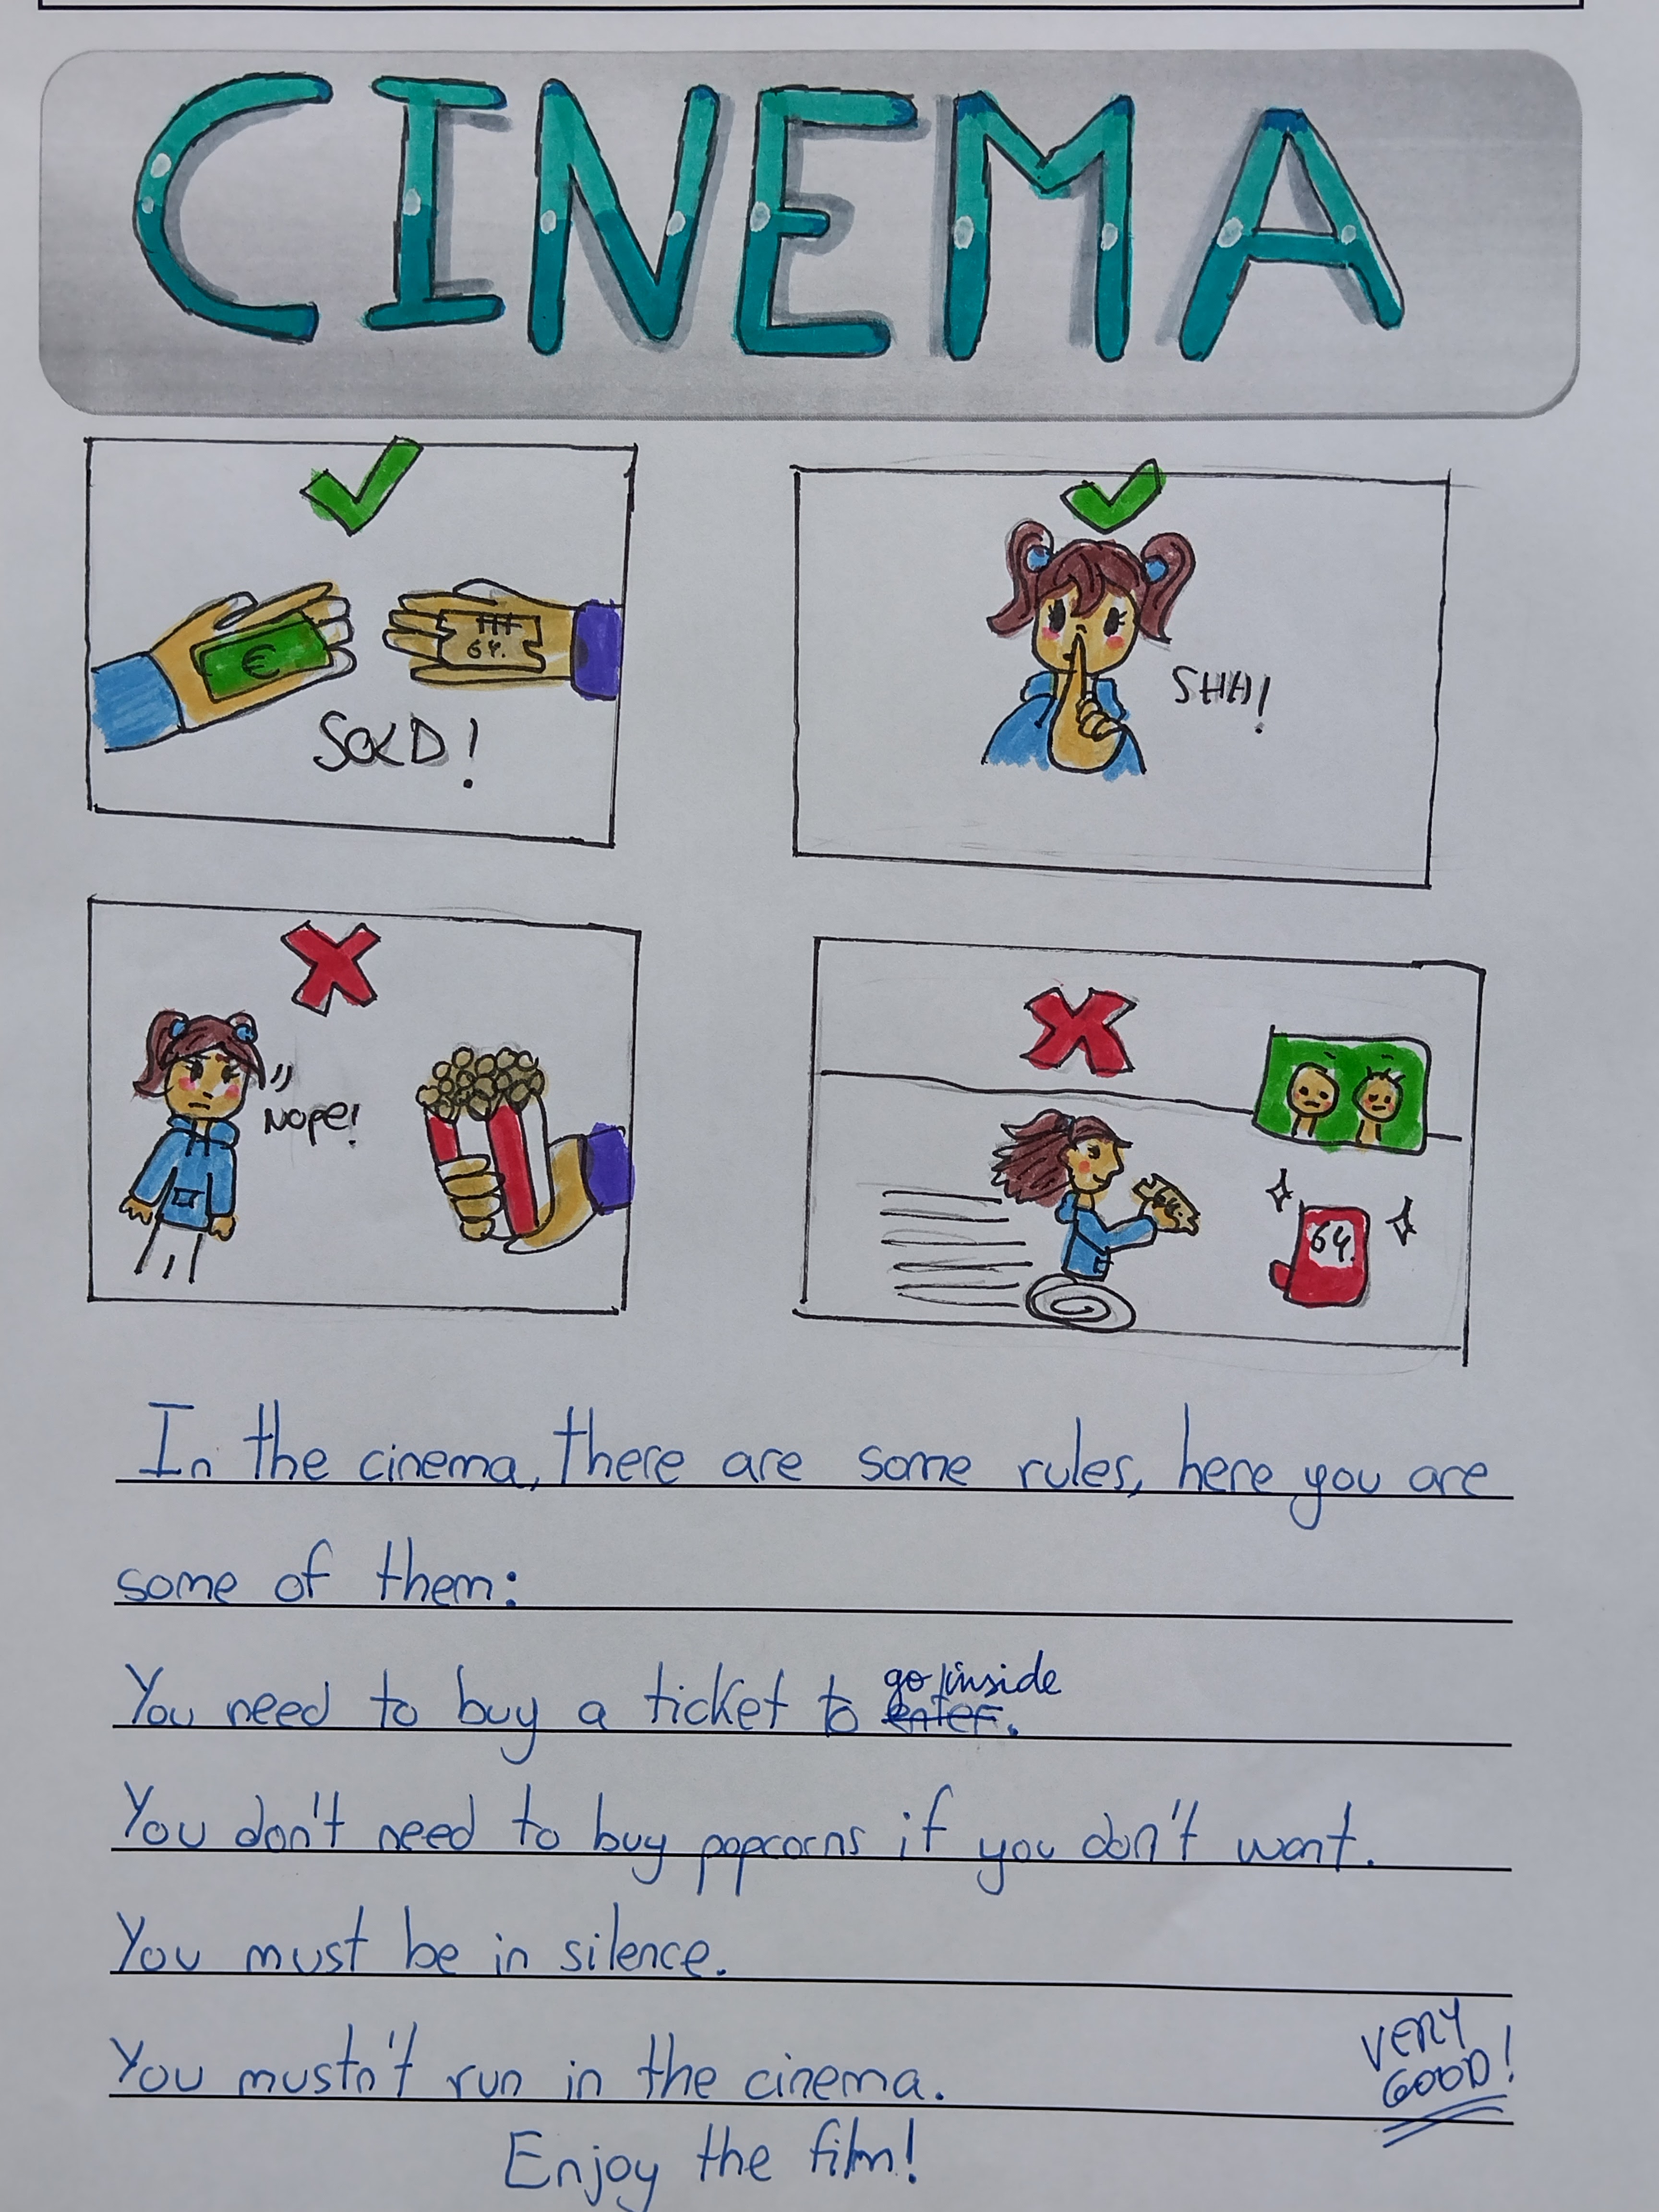 CINEMA
€
64.
SOLD!
SHH!
NOPE!
64.
In the cinema, there are some rules, here you are
some of them:
go inside
You need to buy a ticket to enter.
You don't need to buy popcorns if you don't want.
You must be in silence.
You mustn't run in the cinema.
VERY
GOOD!
Enjoy the film!